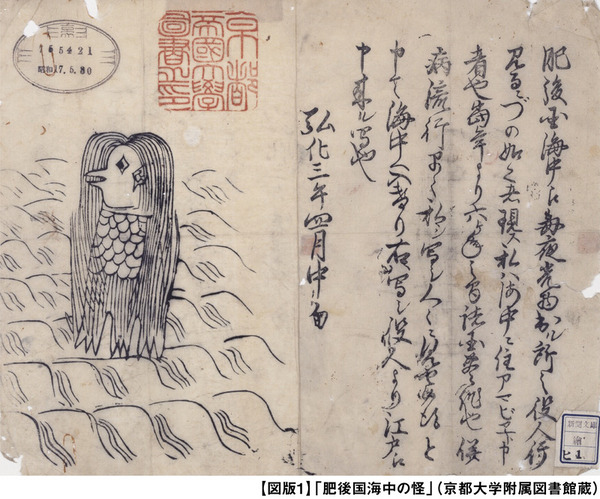 肥後国海中え毎夜光物出ル所之役人行
見るニづの如く者現ス私ハ海中ニ住アマビヱト申
者也当年より六ヶ年之間諸国豊作也併
病流行早々私シ写シ人々ニ見せ候得と
申て海中へ入けり右写シ役人より江戸え
申来ル写也
弘化三年四月中旬
京都
帝國大學
圖書之印
165421
昭和17.5.30
【図版1】「肥後国海中の怪」（京都大学附属図書館蔵）